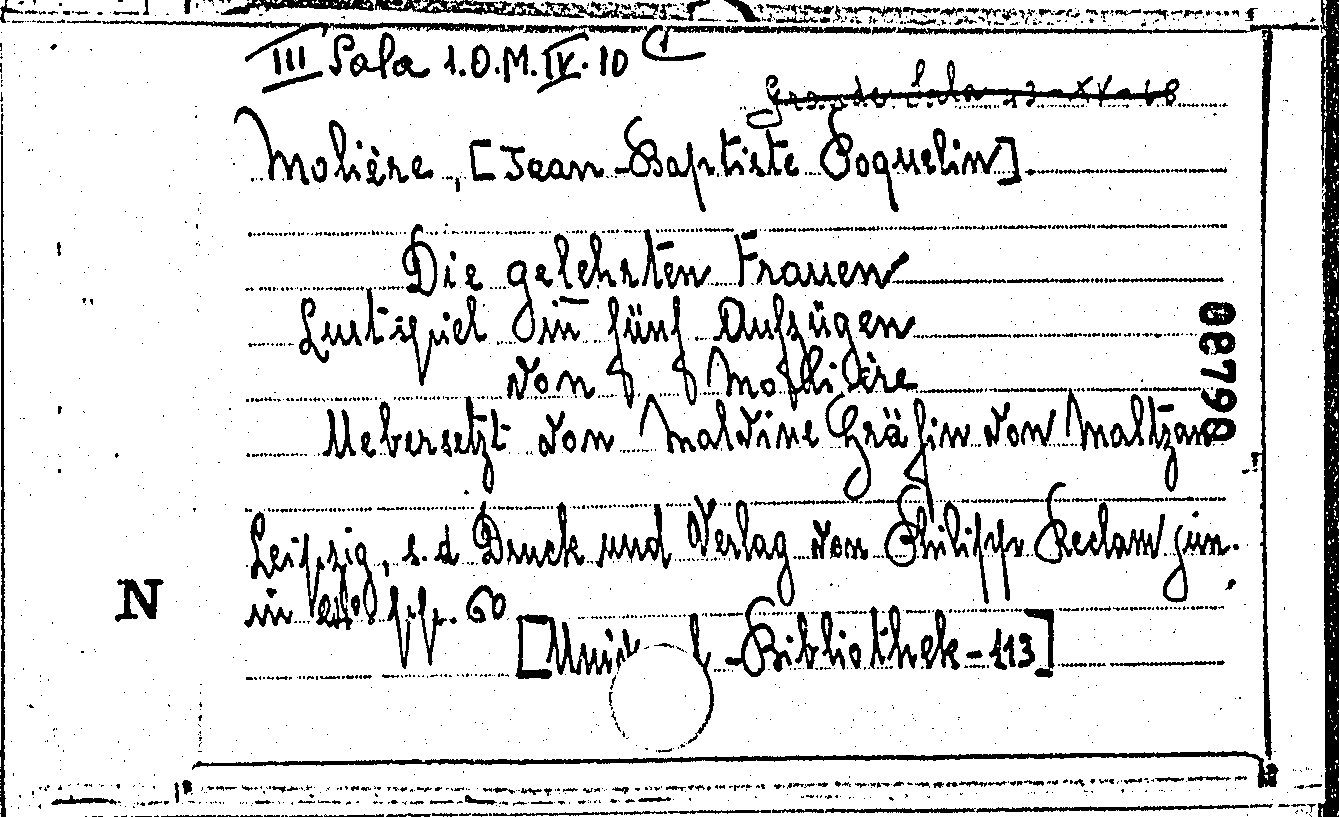 III Sala 1.O.M.IV.10
Grande Sala 23-XV-68
Molière, [Jean-Baptiste Poquelin].
Die gelehrten Frauen
Lustspiel in fünf Aufzügen
von Molière
Uebersetzt von Malvine Gräfin von Maltzan
Leipzig, s.d Druck und Verlag von Philipp Reclam jun.
in 24° pp. 60
-Bibliothek-113]
N
06780